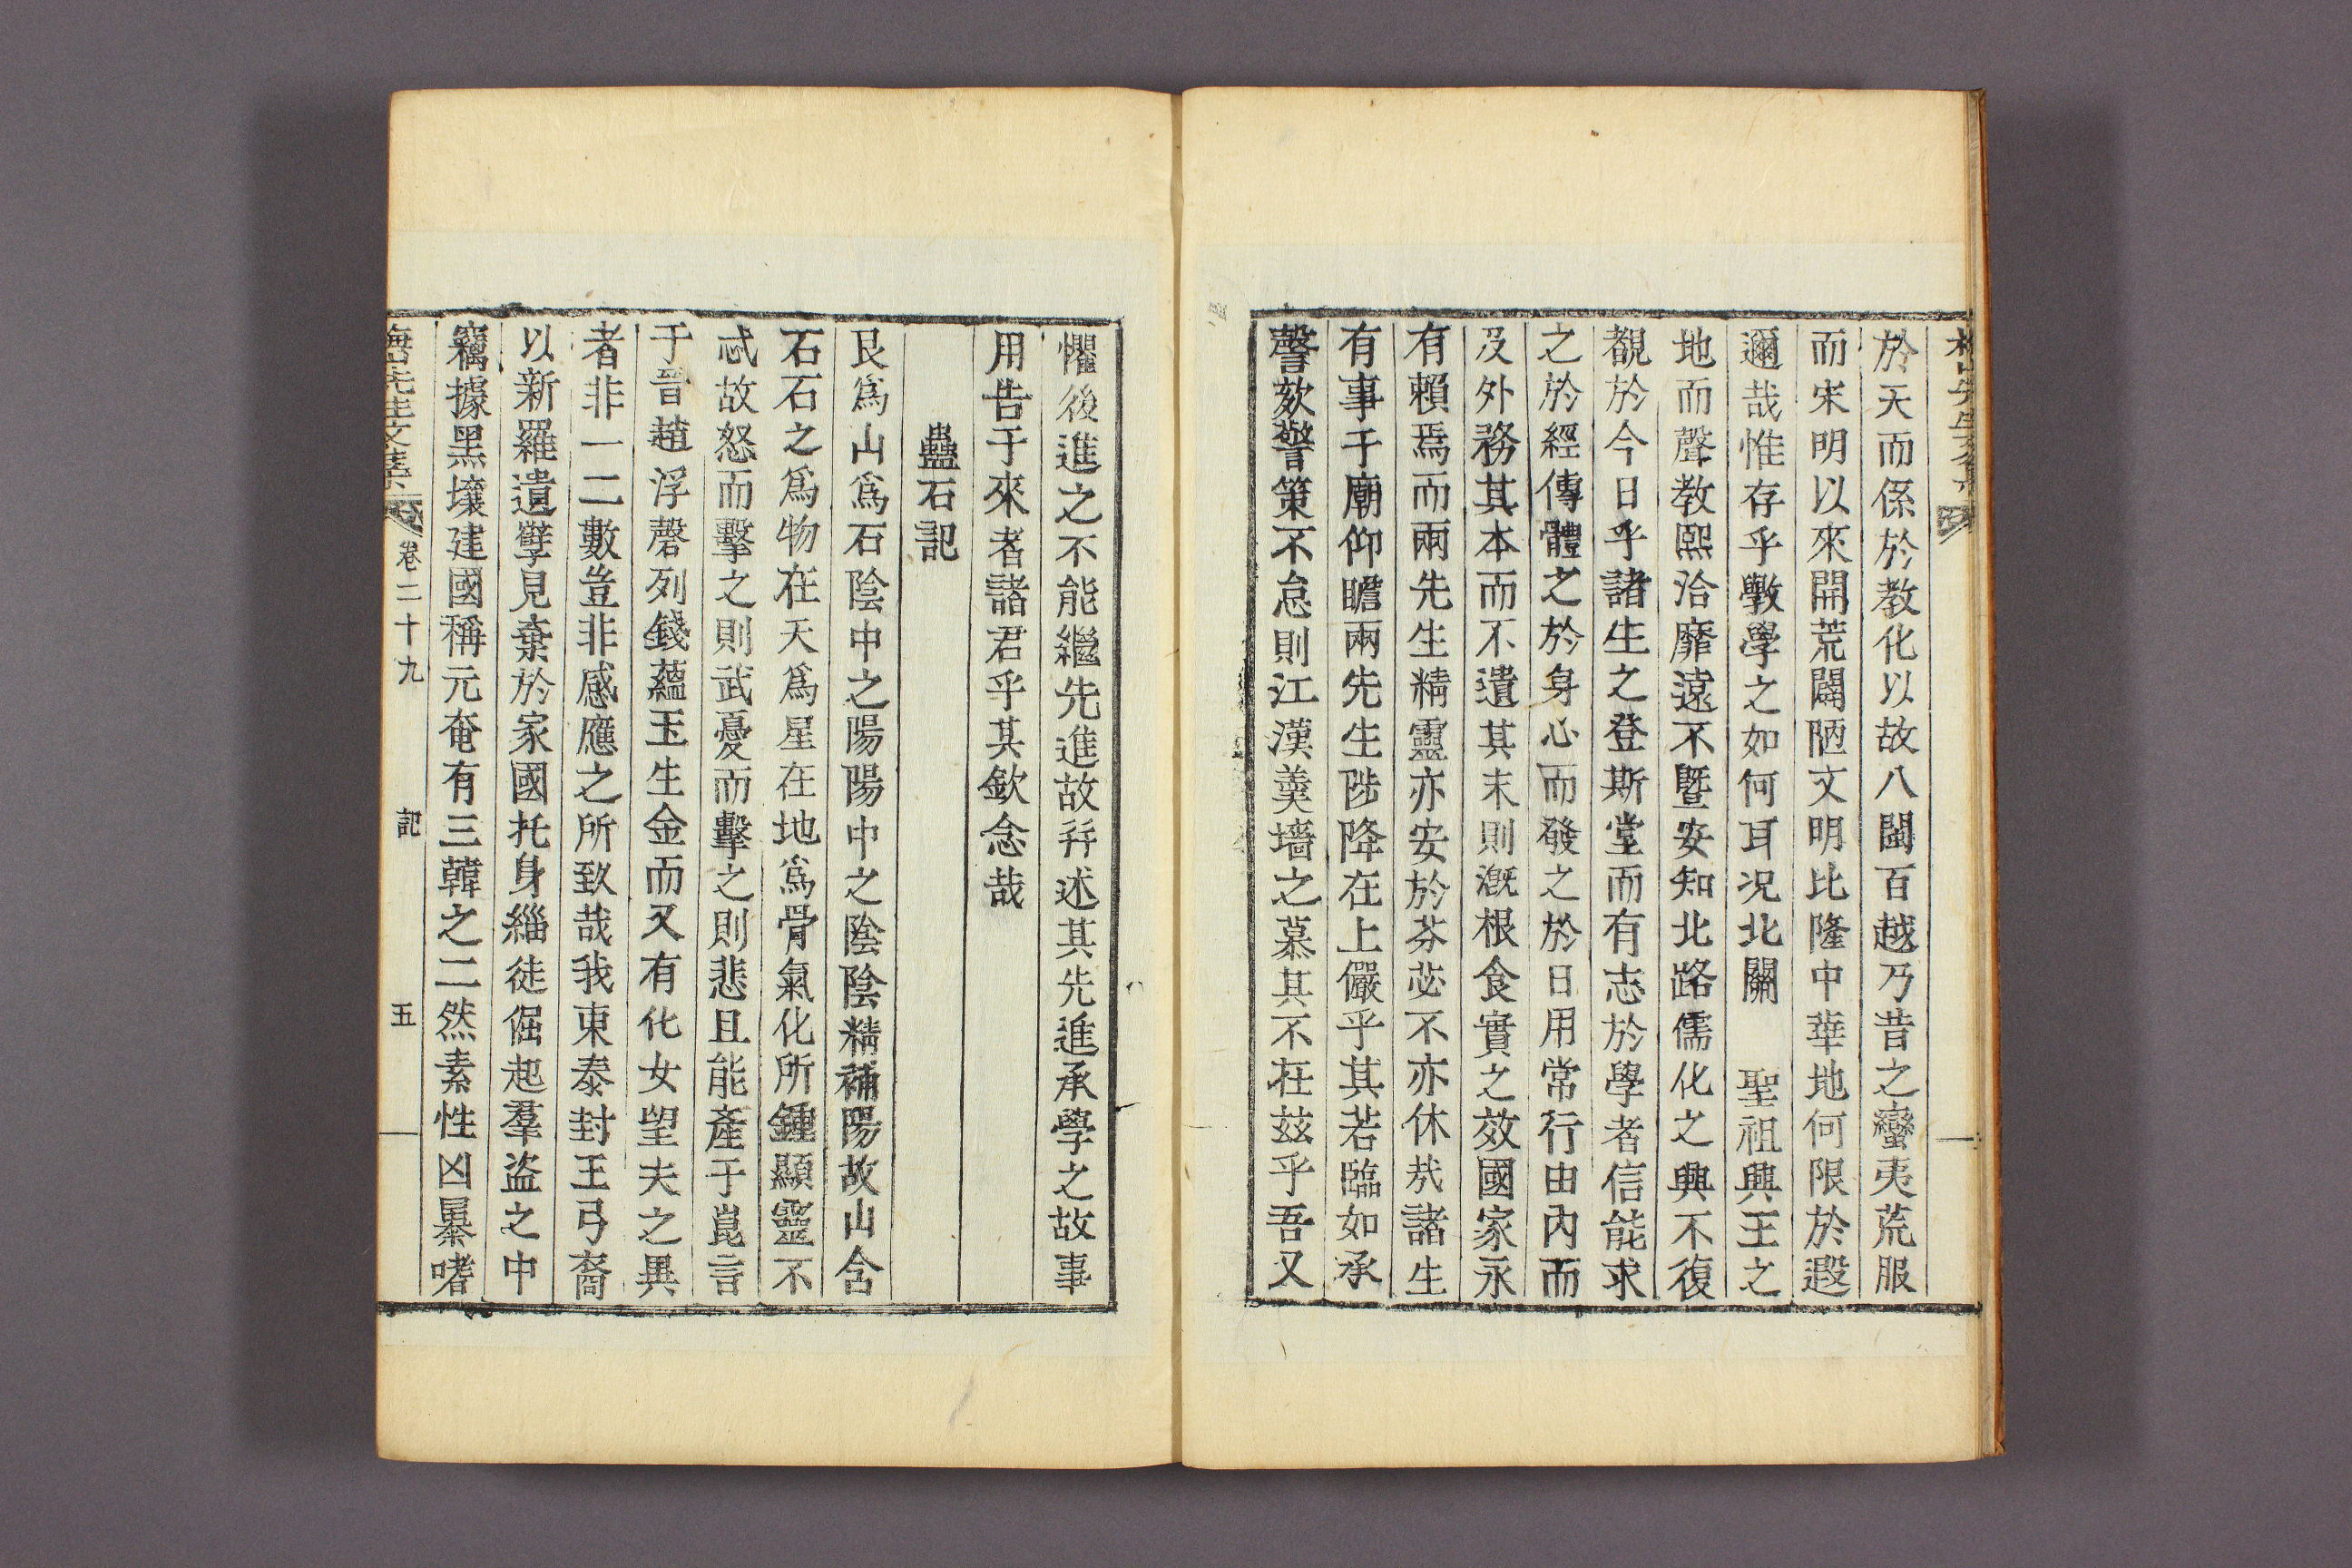 於天而係於教化以故八閩百越乃昔之蠻夷荒服
而宋明以來開荒闢陋文明比隆中華地何限於遐
邇哉惟存乎斆學之如何耳况北關 聖祖興王之
地而聲教熙洽靡遠不曁安知北路儒化之興不復
覩於今日乎諸生之登斯堂而有志於學者信能求
之於經傳體之於身心而發之於日用常行由內而
及外務其本而不遺其末則漑根食實之效國家永
有賴焉而兩先生精靈亦安於芬苾不亦休哉諸生
有事于廟仰瞻兩先生陟降在上儼乎其若臨如承
謦欬警策不怠則江漢羹墻之慕其不在玆乎吾又
懼後進之不能繼先進故幷述其先進承學之故事
用告于來者諸君乎其欽念哉
蠱石記
艮爲山爲石陰中之陽陽中之陰陰精補陽故山含
石石之爲物在天爲星在地爲骨氣化所鍾顯靈不
忒故怒而擊之則武憂而擊之則悲且能產于崑言
于晉趙浮磬列錢蘊玉生金而又有化女望夫之異
者非一二數豈非感應之所致哉我東泰封王弓裔
以新羅遺孼見棄於家國托身緇徒倔起羣盜之中
竊據黑壤建國稱元奄有三韓之二然素性凶暴嗜
先生文集 卷二十九 記 五